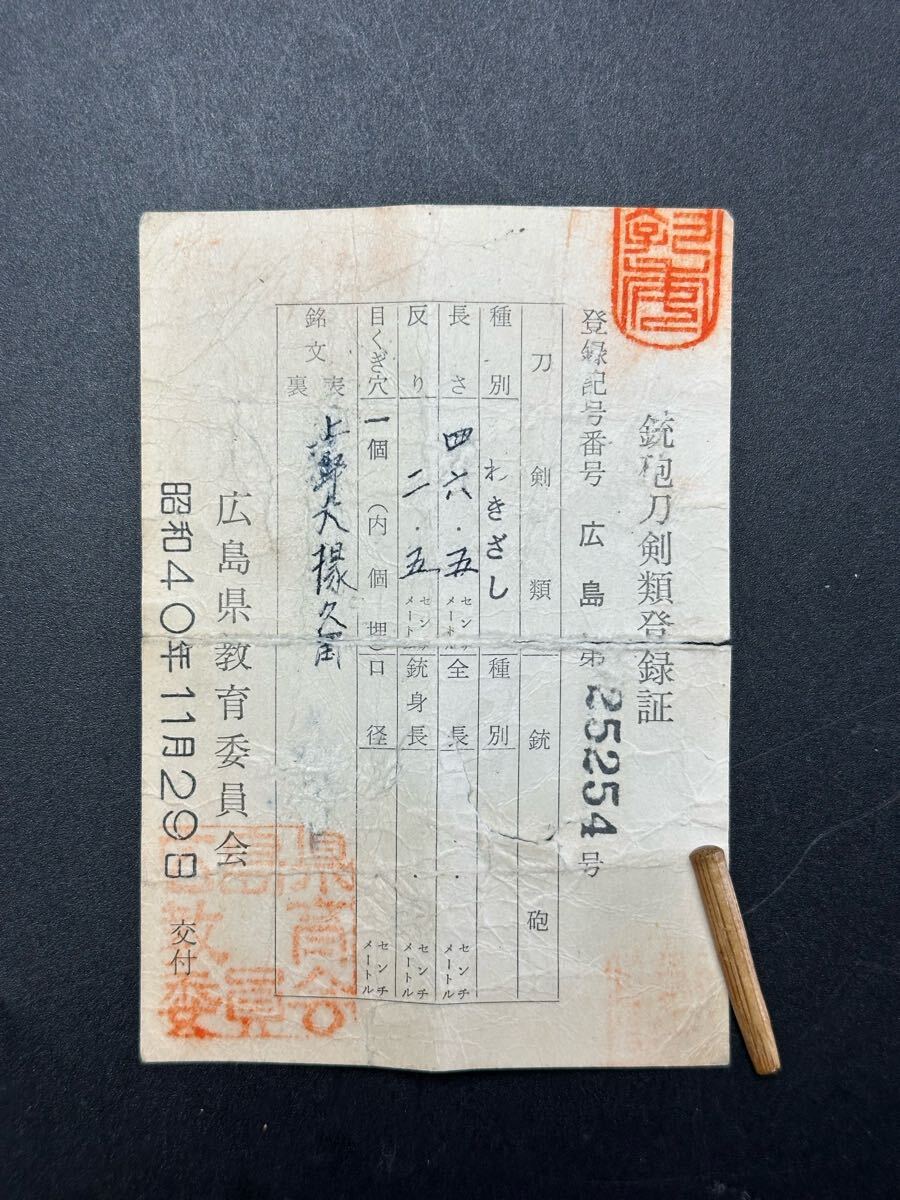 銃砲刀剣類登録証
登録記号番号 広島 第25254号
刀剣類 銃砲
種別 わきざし 種別
長さ 四六.五 センチメートル 全長 . センチメートル
反り 二.五 センチメートル 銃身長 . センチメートル
目くぎ穴 一個(内 個埋) 口径 . センチメートル
銘文 表 上野大掾久国
裏
広島県教育委員会
昭和40年11月29日 交付